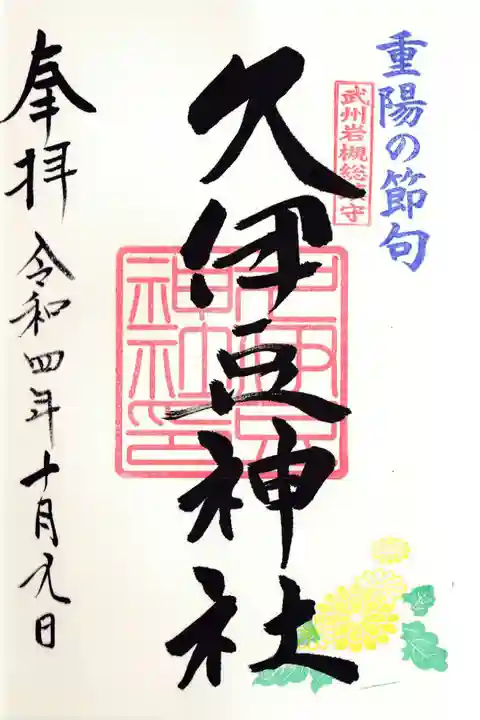 重陽の節句
武州岩槻総鎮守
久伊豆神社
奉拝
令和四年十月九日